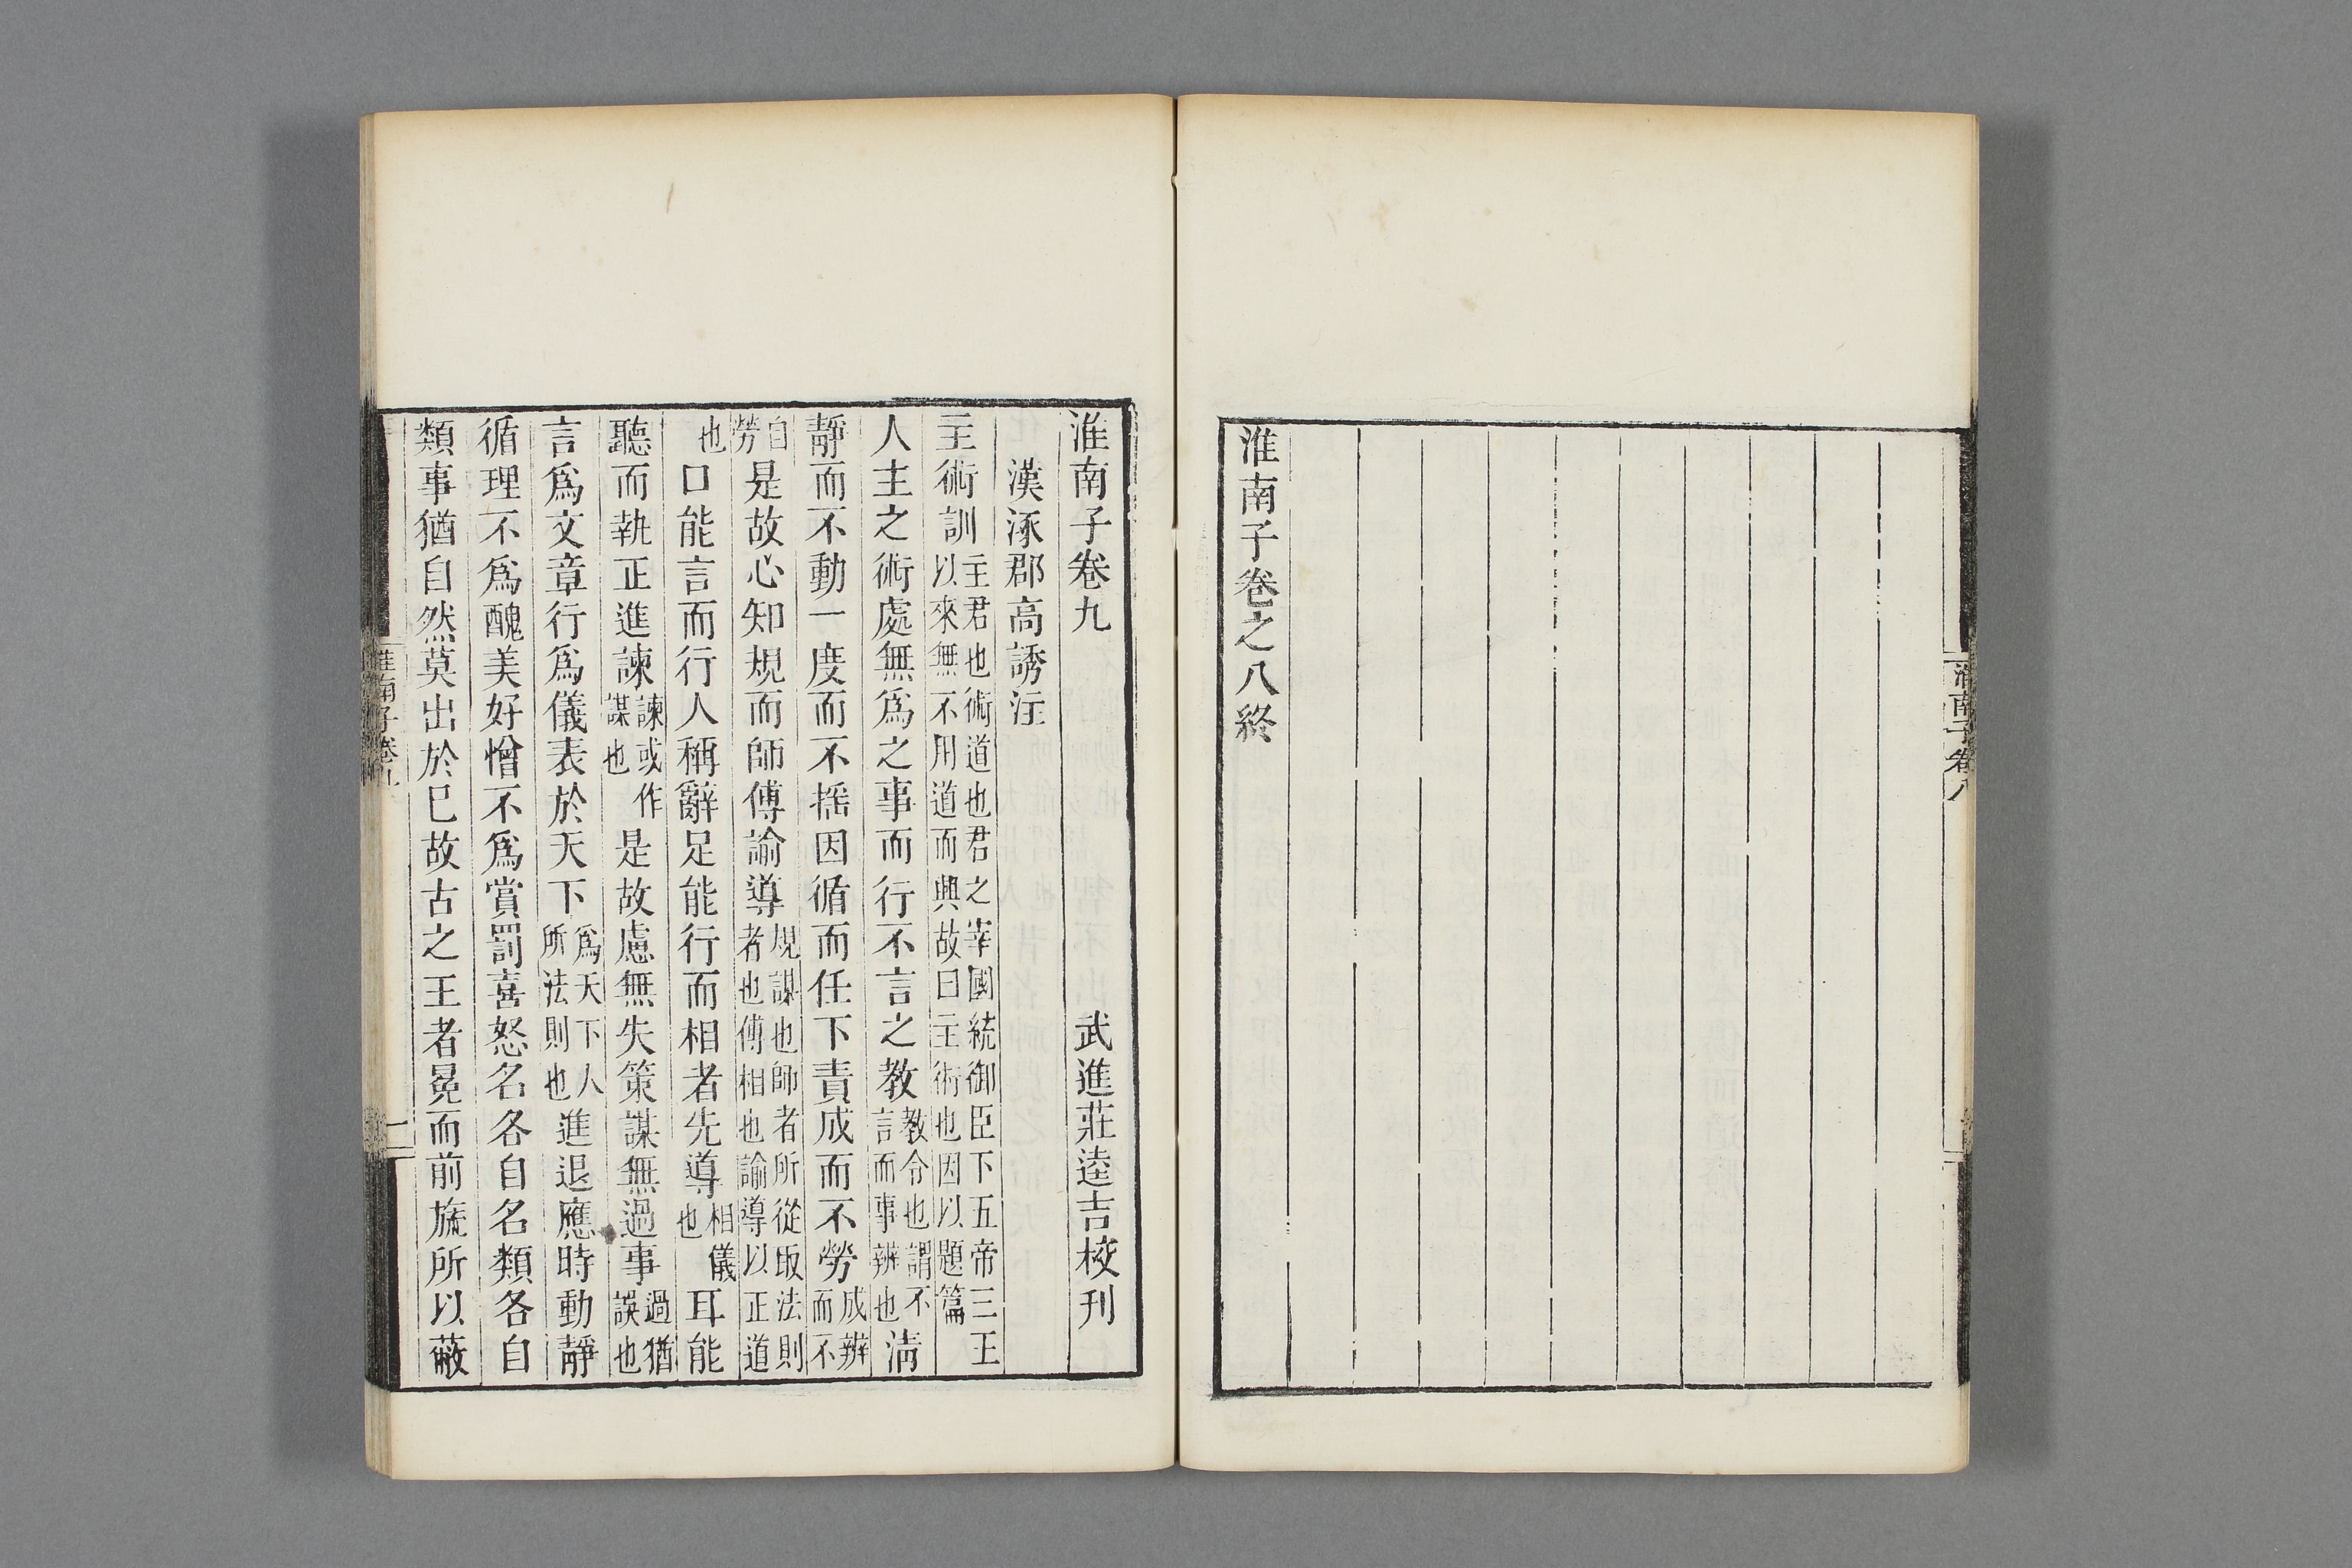 淮南子卷八
淮南子卷之八終
淮南子卷九　武進莊逵吉校刊
漢涿郡高誘注
主術訓主君也術道也君之宰國統御臣下五帝三王以來無不用道而興故曰主術也因以題篇
人主之術處無爲之事而行不言之教教令也謂不言而事辨也淸
靜而不動一度而不搖因循而任下責成而不勞成辨而不
自勞是故心知規而師傅諭導規謀也師者所從取法則者也傅相也諭導以正道
也口能言而行人稱辭足能行而相者先導相儀也耳能
聽而執正進諫諫或作謀也是故慮無失策謀無過事過猶誤也
言爲文章行爲儀表於天下爲天下人所法則也進退應時動靜
循理不爲醜美好憎不爲賞罰喜怒名各自名類各自
類事猶自然莫出於己故古之王者冕而前旒所以蔽
淮南子卷九
一